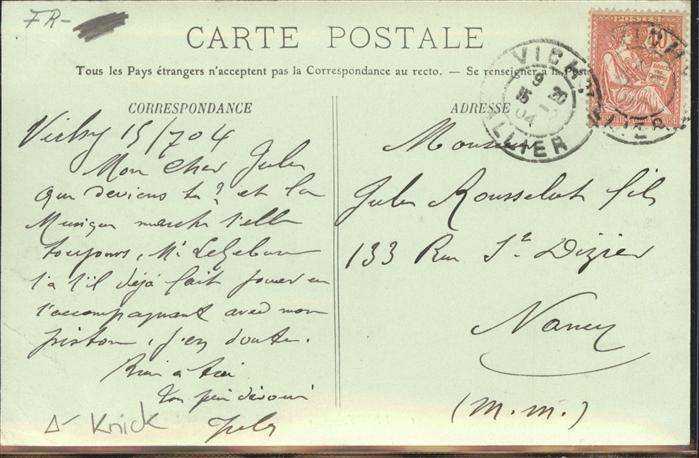 FR-
CARTE POSTALE
Tous les Pays étrangers n'acceptent pas la Correspondance au recto. — Se renseigner à la Poste
CORRESPONDANCE
ADRESSE
POSTES
VICHY
9 20
15 -7
04
ALLIER
Vichy 15/704
Mon cher Jules
Que deviens tu? et la
Musique marche t'elle
toujours, Mr Lefebvre
t'a t'il déjà fait jouer en
t'accompagnant avec mon
piston, j'en doute.
Bien à toi
Ton dévoué
Jules
Monsieur
Jules Rousselot fils
133 Rue St Dizier
Nancy
(M.M.)
Knick